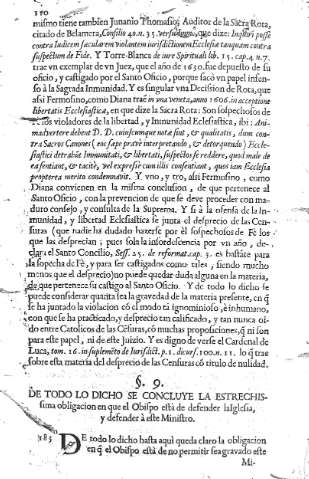 110
mismo tiene tambien Junanio Thomasio, Auditor de la Sacra Rota,
citado de Belamera, Consilio 40. n. 35. vers. que dize:
contra Iudicem sæcularem violantem iurisdictionem Ecclesiæ tanquam contra
suspectum de Fide. Y Torre-Blanca de iure Spirituali lib. 15. cap. 4. n. 7.
trae vn exemplar de vn Juez, que el año de 1650. fue depuesto de su
oficio, y castigado por el Santo Oficio, porque sacò vn papel infen-
so à la Sagrada Inmunidad. Y es singular vna Decision de Rota, que
assi Fermosino, como Diana trae in vna Veneta, anno 1606. in acceptione
libertatis Ecclesiasticæ, en que dize la Sacra Rota: Son sospechosos de
los violadores de la libertad, y Inmunidad Eclesiastica, ibi: Ani-
madvertere debeat D. D. cuiuscumque notæ sint, & qualitatis, dum con-
tra Sacros Canones (vt sæpe pravè interpretando, & detorquendo) Eccle-
siasticæ detrahũt Immunitati, & libertati, suspectos se reddere, quod male de
ea sentiant, & tacitè, vel expressè cum illis consentiant, quos iam Ecclesia
propterea merito condemnavit. Y vno, y otro, assi Fermosino, como
Diana convienen en la misma conclusion, de que pertenece al
Santo Oficio, con la prevencion de que se deve proceder con ma-
duro consejo, y consulta de la Suprema. Y si à la ofensa de la In-
munidad, y libertad Eclesiastica se junta el desprecio de las Cen-
suras (que nadie ha dudado hazerse por èl sospechosos de Fè los
que las desprecian; pues sola la insordescencia por vn año, de-
clara el Santo Concilio, Sess. 25. de reformat. cap. 3. es bastãte para
la sopecha de Fè, y para ser castigados como tales, siendo mucho
menos que el desprecio) no puede quedar duda alguna en la materia,
de que pertenece su castigo al Santo Oficio. Y de todo lo dicho se
puede considerar quanta sea la gravedad de la materia presente, en q̃
se hà juntado la violacion cõ el modo tã ignominioso, è inhumano,
con que se ha practicado, y desprecio tan calificado, y tan nunca oì-
do entre Catolicos de las Cẽsuras, cõ muchas proposiciones, q̃ ni son
para este papel, ni de este juizio. Y es digno de verse el Cardenal de
Luca, tom. 16. in suplemẽto de Iurisdict. p. 1. discurs. 100. n. 11. lo q̃ trae
sobre esta materia del desprecio de las Censuras cõ titulo de nulidad.
§. 9.
DE TODO LO DICHO SE CONCLUYE LA ESTRECHIS-
sima obligacion en que el Obispo està de defender la Iglesia,
y defender à este Ministro.
383 DE todo lo dicho hasta aqui queda claro la obligacion
en q̃ el Obispo està de no permitir sea gravado este
Mi-